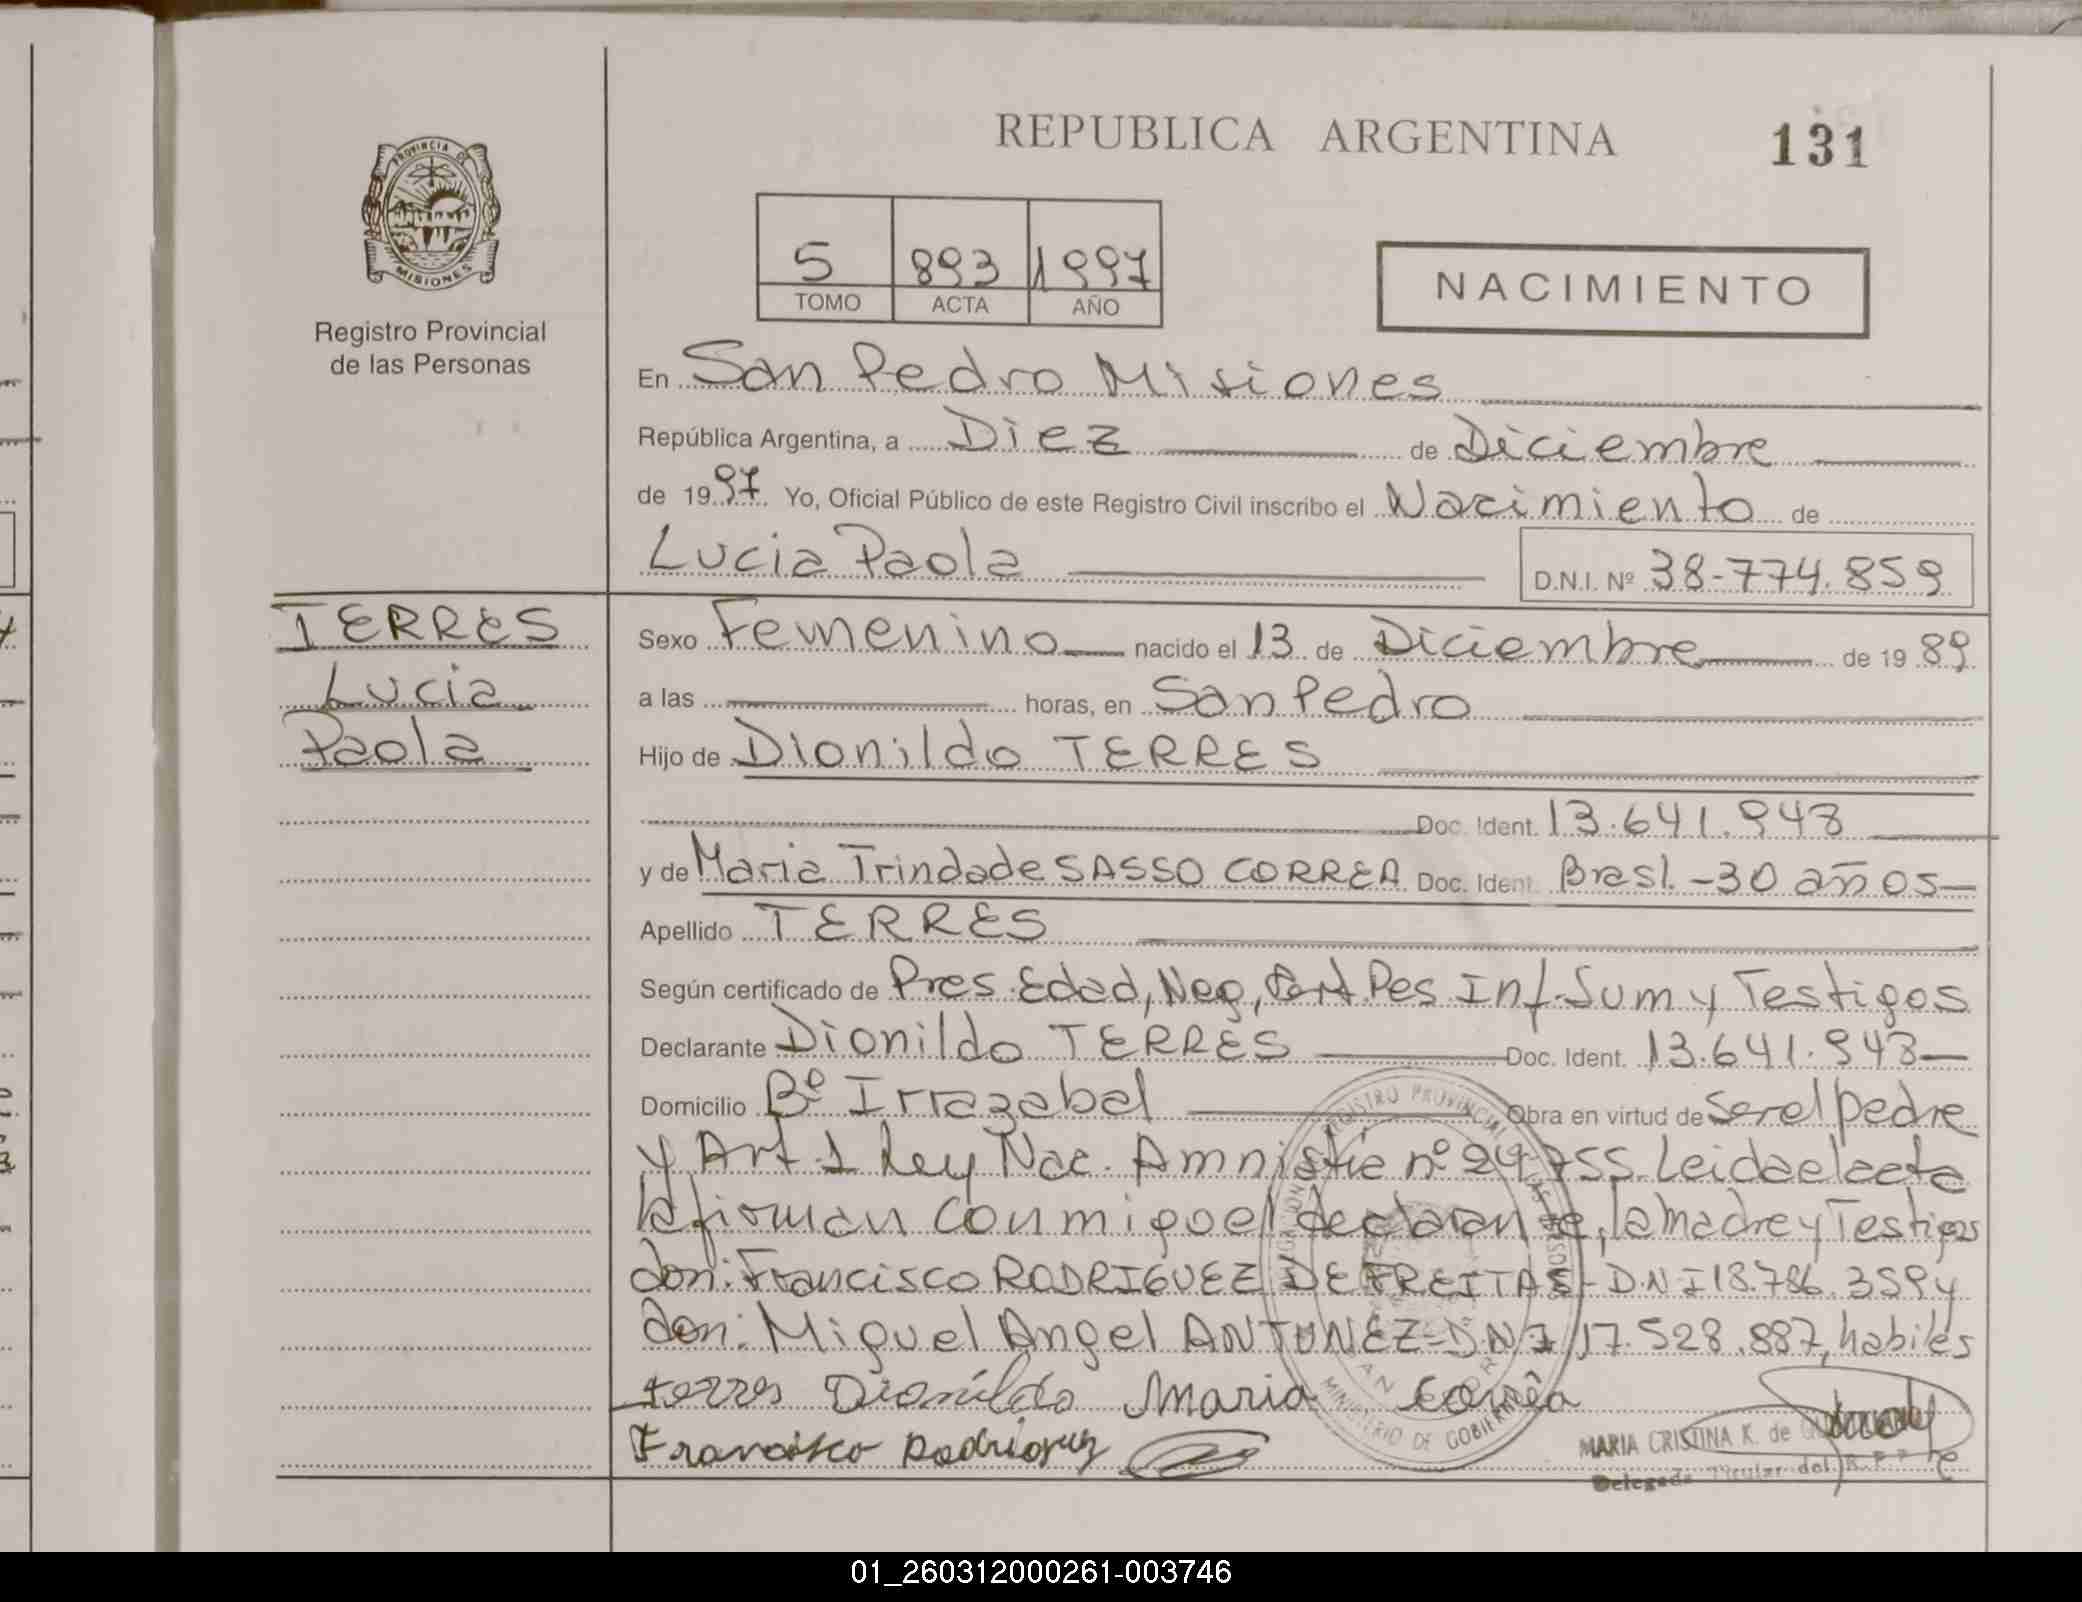 REPUBLICA ARGENTINA
131
PROVINCIA DE
MISIONES
Registro Provincial
de las Personas
5 893 1997
TOMO ACTA AÑO
NACIMIENTO
En San Pedro Misiones
República Argentina, a Diez de Diciembre
de 1997 Yo, Oficial Público de este Registro Civil inscribo el Nacimiento de
Lucia Paola D.N.I. Nº 38-774.859
TERRES
Lucia
Paola
Sexo Femenino nacido el 13 de Diciembre de 1989
a las horas, en San Pedro
Hijo de Dionildo TERRES
Doc. Ident. 13.641.943
y de Maria Trindade SASSO CORREA Doc. Ident. Brasl. - 30 años
Apellido TERRES
Según certificado de Pres. Edad, Neg, Pes Inf. Sum y Testigos
Declarante Dionildo TERRES Doc. Ident. 13.641.943
Domicilio Bº Irrazabal Obra en virtud de Ser el padre
y Art. 1 Ley Nac. Amnistia nº 24.755. Leida el acta
la firman conmigo el declarante, la madre y Testigos
don: Francisco RODRIGUEZ DE FREITAS - DNI 18.786.359 y
don: Miguel Angel ANTUNEZ - DNI 17.528.887, habiles
terres Dionildo Maria Corrêa
Francisco Rodriguez
MARIA CRISTINA K. de
Delegada Titular del R.P.P.
REGISTRO PROVINCIAL DE LAS PERSONAS
MINISTERIO DE GOBIERNO
01_260312000261-003746